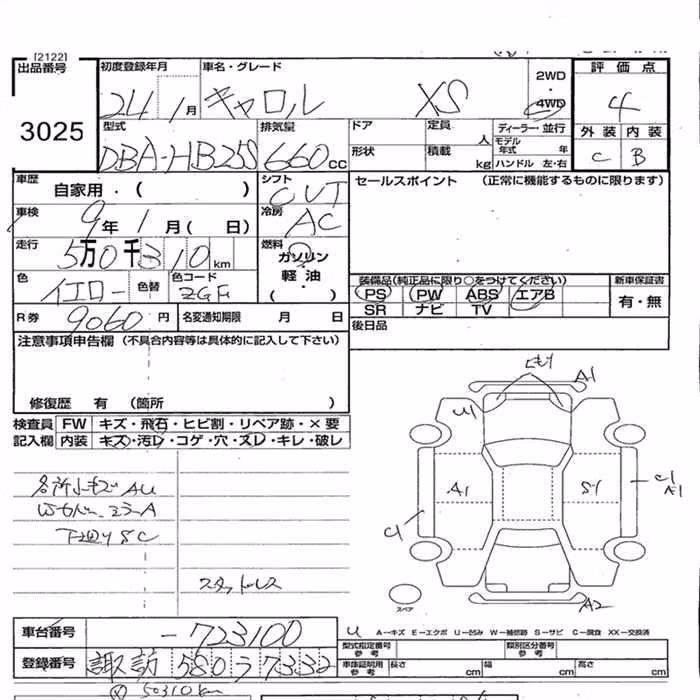 [2122]
出品番号
3025
初度登録年月
24 1月
車名・グレード
キャロル XS
2WD
・
4WD
評価点
4
外装 内装
C B
型式
DBA-HB25S
排気量
660cc
ドア
定員
人
形状
積載
kg
ディーラー・並行
モデル年式 年
ハンドル 左・右
車歴
自家用・( )
シフト
CVT
車検
9年1月( 日)
冷房
AC
走行
5万0千310km
燃料
ガソリン
軽・油
( )
色
イエロー
色替
色コード
R券
9060円
名変通知期限 月 日
セールスポイント (正常に機能するものに限ります)
装備品(純正品に限り○をつけてください)
PS PW ABS エアB
SR ナビ TV
新車保証書
有・無
後日品
注意事項申告欄 (不具合内容等は具体的に記入して下さい)
修復歴 有 (箇所 )
検査員 FW キズ・飛石・ヒビ割・リペア跡・×要
記入欄 内装 キズ・汚レ・コゲ・穴・スレ・キレ・破レ
A1
U1
A1
S1
C1
A1
C1
スペア
A2
スタットレス
車台番号
-723100
登録番号
諏訪 580 う 7332
U A-キズ E-エクボ U-凹み W-補修跡 S-サビ C-腐食 XX-交換済
型式指定番号 参考
類別区分番号 参考
車庫証明用 参考
長さ cm 幅 cm 高さ cm
50310km